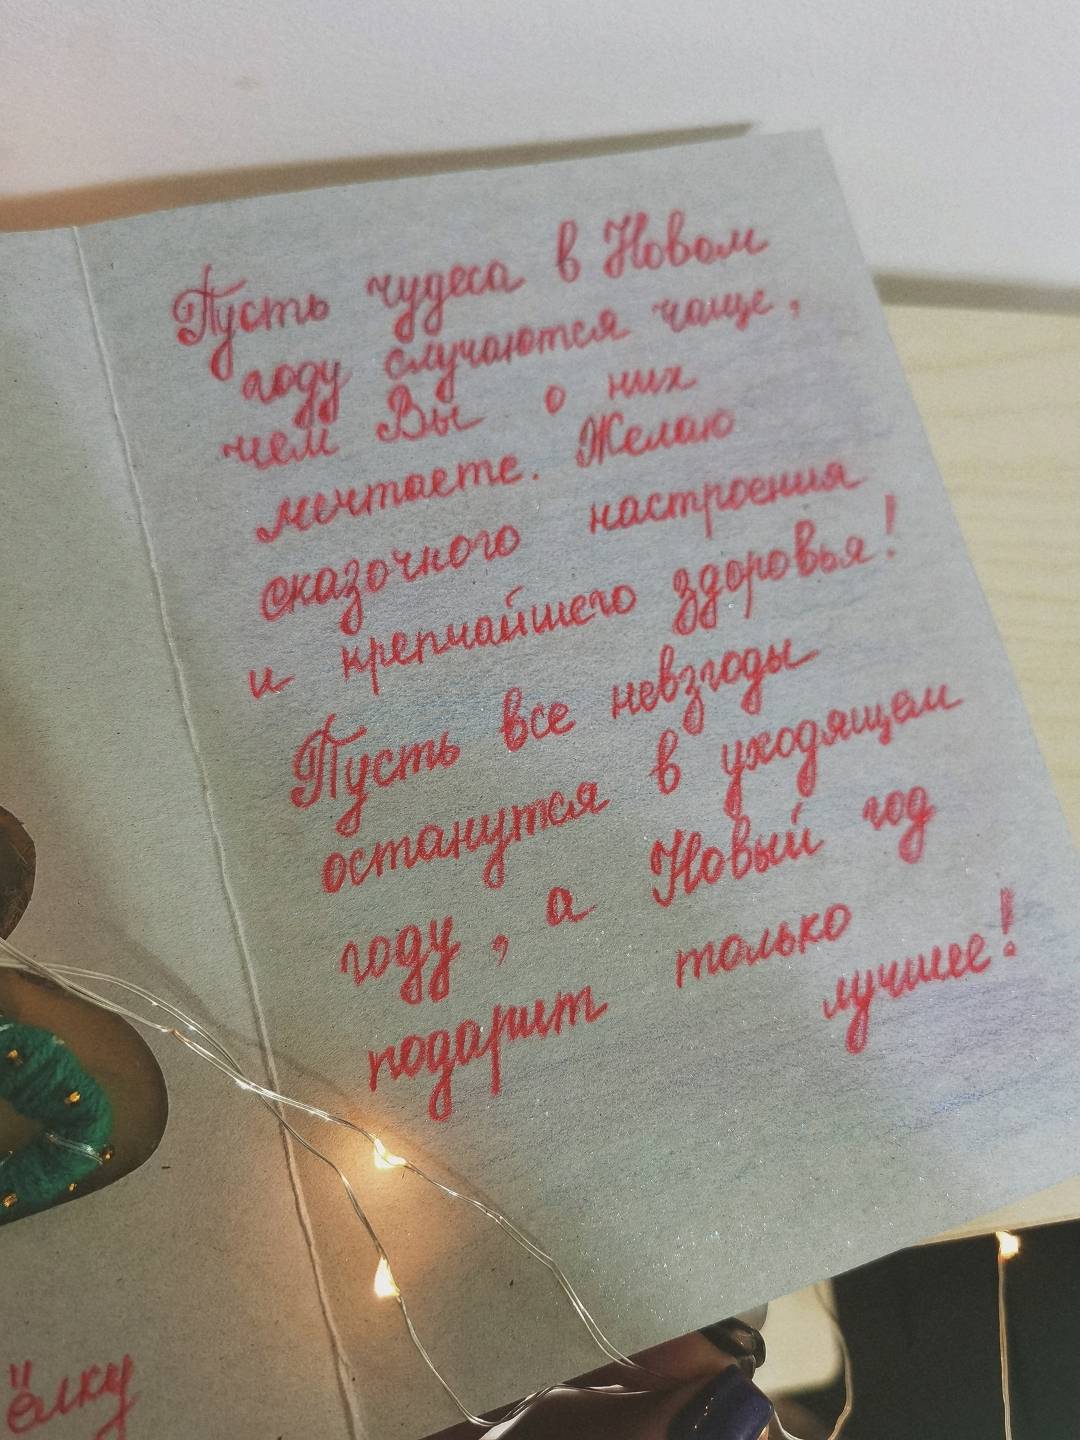 Пусть чудеса в Новом
году случаются чаще,
чем Вы о них
мечтаете. Желаю
сказочного настроения
и крепчайшего здоровья!
Пусть все невзгоды
останутся в уходящем
году, а Новый год
подарит только
лучшее!
ёлку